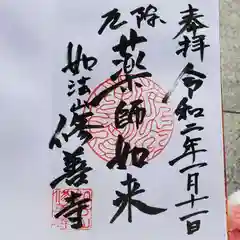 奉拝 令和二年一月十一日
厄除
薬師如来
如法山
修善寺